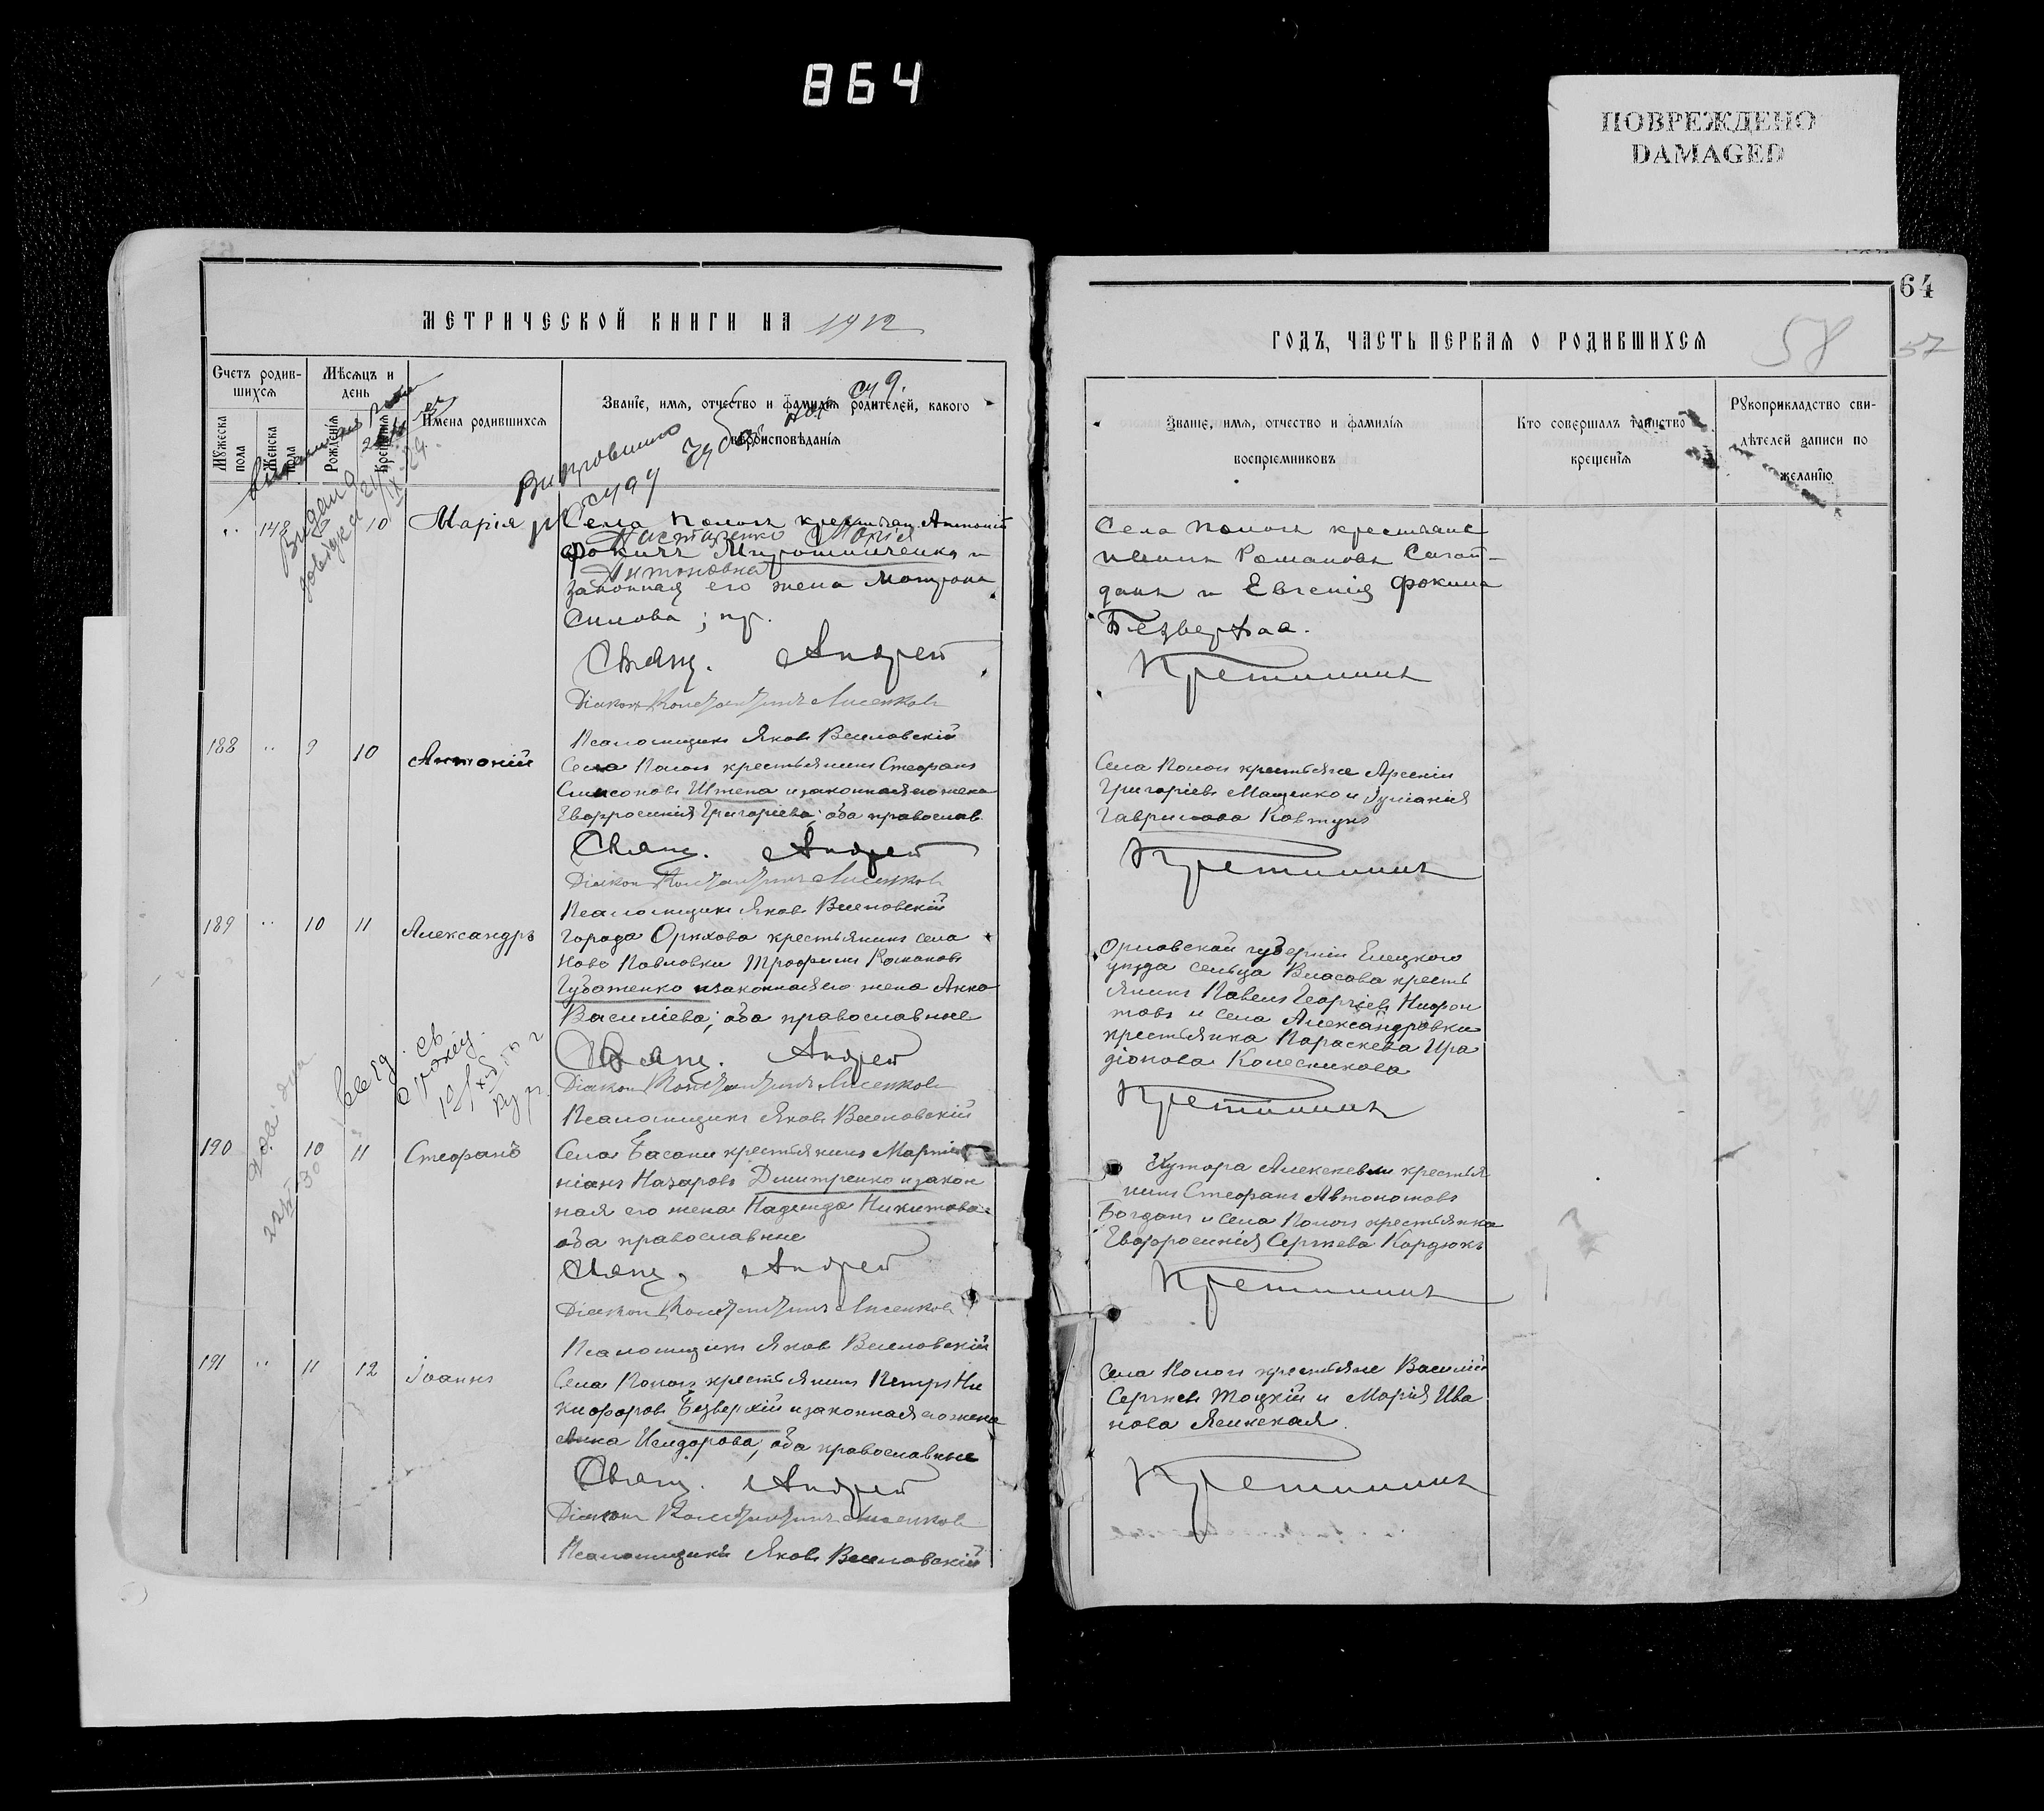 864
ПОВРЕЖДЕНО
DAMAGED
МЕТРИЧЕСКОЙ КНИГИ НА 1912
Счетъ родив-
шихся
Мѣсяцъ и
день
Мужеска
пола
Женска
пола
Рожденія
Крещенія
Имена родившихся
Званіе, имя, отчество и фамилія родителей, какого
вѣроисповѣданія
148
10
Марія
Села Пологъ крестьян. Антоній
Фокичъ Мирошниченко и
законная его жена Матрона
Силова; пр.
Свящ. Андрей
Діаконъ Константинъ Лисенковъ
Псаломщикъ Яковъ
188 " 9 10 Антоній
Села Пологъ крестьянинъ Стефанъ
Симсоновъ Штепа и законная его жена
Евфросинія Григоріева; оба православ.
Свящ. Андрей
Діаконъ Константинъ Лисенковъ
Псаломщикъ Яковъ
189 " 10 11 Александръ
Города Орѣхова крестьянинъ села
Ново Павловки Трофимъ Романовъ
Губаженко и законная его жена Анна
Василіева; оба православные
Свящ. Андрей
Діаконъ Константинъ Лисенковъ
Псаломщикъ Яковъ
190 10 11 Стефанъ
Села Басани крестьянинъ Марти
ніанъ Назаровъ Дмитренко и закон
ная его жена Надежда Никитова
оба православные
Свящ. Андрей
Діаконъ Константинъ Лисенковъ
Псаломщикъ Яковъ
191 " 11 12 Іоаннъ
Села Пологъ крестьянинъ Петръ Ни
кифоровъ Безверхій и законная его жена
Анна Исидорова, оба православные
Свящ. Андрей
Діаконъ Константинъ Лисенковъ
Псаломщикъ Яковъ
64
ГОДЪ, ЧАСТЬ ПЕРВАЯ О РОДИВШИХСЯ
58
57
Званіе, имя, отчество и фамилія
воспріемниковъ
Кто совершалъ таинство
крещенія
Рукоприкладство сви-
дѣтелей записи по
желанію
Села Пологъ крестьяне
Романовъ Сагай-
дакъ и Евгенія Фокина
Безверхая.
Кретининъ
Села Пологъ крестьяне Арсеній
Григоріевъ Мащенко и Іуліанія
Гаврилова Ковтунъ
Кретининъ
Орловской губерніи Елецкого
уѣзда сельца Власова кресть
янинъ Павелъ Георгіевъ Нифон
товъ и села Александровки
крестьянка Параскева Ира
діонова Колесникова
Кретининъ
Хутора Алексѣевки крестья
нинъ Стефанъ Автономовъ
Богданъ и села Пологъ крестьянка
Евфросинія Сергѣева Кордюкъ
Кретининъ
Села Пологъ крестьяне Василій
Сергѣевъ Тоцкій и Марія Ива
нова Ясинская.
Кретининъ